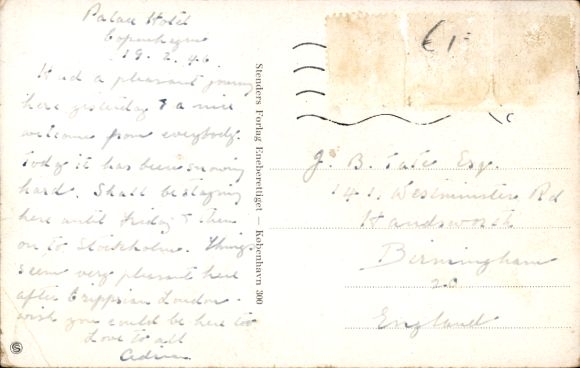 Palace Hotel
Copenhagen
19. 2. 46.
Had a pleasant journey
here yesterday & a nice
welcome from everybody.
Today it has been snowing
hard. Shall be staying
here until Friday & then
on to Stockholm. Things
seem very pleasant here
after London
wish you could be here too
Love to all
Stenders Forlag Eneberettiget — Kobenhavn 300
€1=
J. B. Tate Esq.
141. Westminster Rd
Handsworth
Birmingham
20
England
S